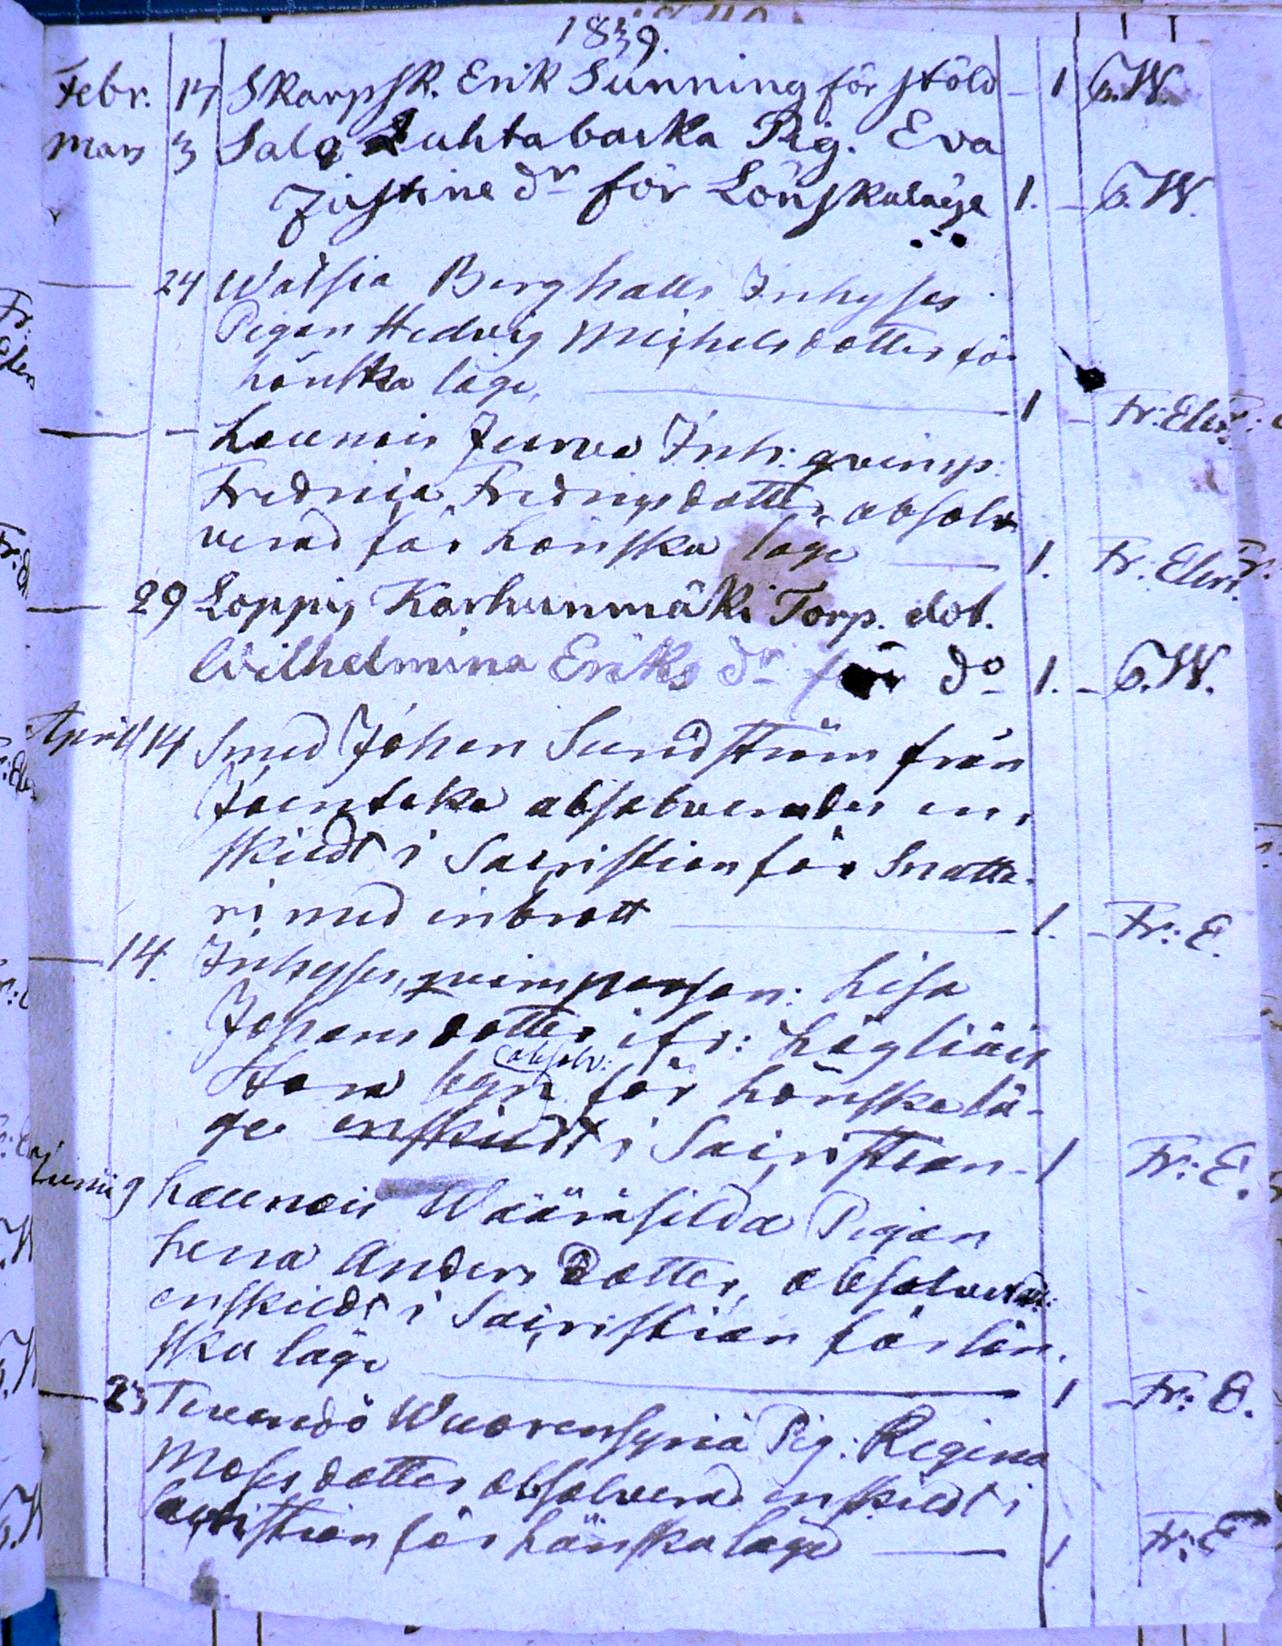 1839.
Febr. 17 Skarpsk. Erik Sunning för stöld – 1 G.W.
Mars 3 Salo Luhtabacka Pig. Eva
Justina dr för Lönskaläge 1. – G.W.
— 24 Watsia Berghalls Inhyses
Pigan Hedvig Michelsdotter för
Lönska läge, — 1 – Fr: Elm:
— – Launois Jurva Inh: qvinsp:
Fredrica Fredrigsdotter, absol
verad för Lönska läge — 1. Fr: Elm:
— 29 Loppi, Karhunmäki Torp. dot.
Wilhelmina Eriks dr för do 1. – G.W.
April 14 Smed Johan Sundström från
Joentaka absolverades en,
skildt i Sacristian för Snatte,
ri med inbrott — 1. – Fr: E.
— 14. Inhyses, qvinsperson: Lisa
Johansdotter ifr: Lägliäis
absolv:
för Lönska lä-
ge enskildt i Sacristian – 1 Fr: E.
Junii 9 Launois Wääräsilda Pigan
Lena Anders dotter, absolverad:
enskildt i Sacristian för lön,
ska läge — 1 – Fr: E.
— 23 Wuorensyriä Pig: Regina
Mosesdotter absolverad enskildt i
Sacristian för Lönska läge — 1 Fr: E